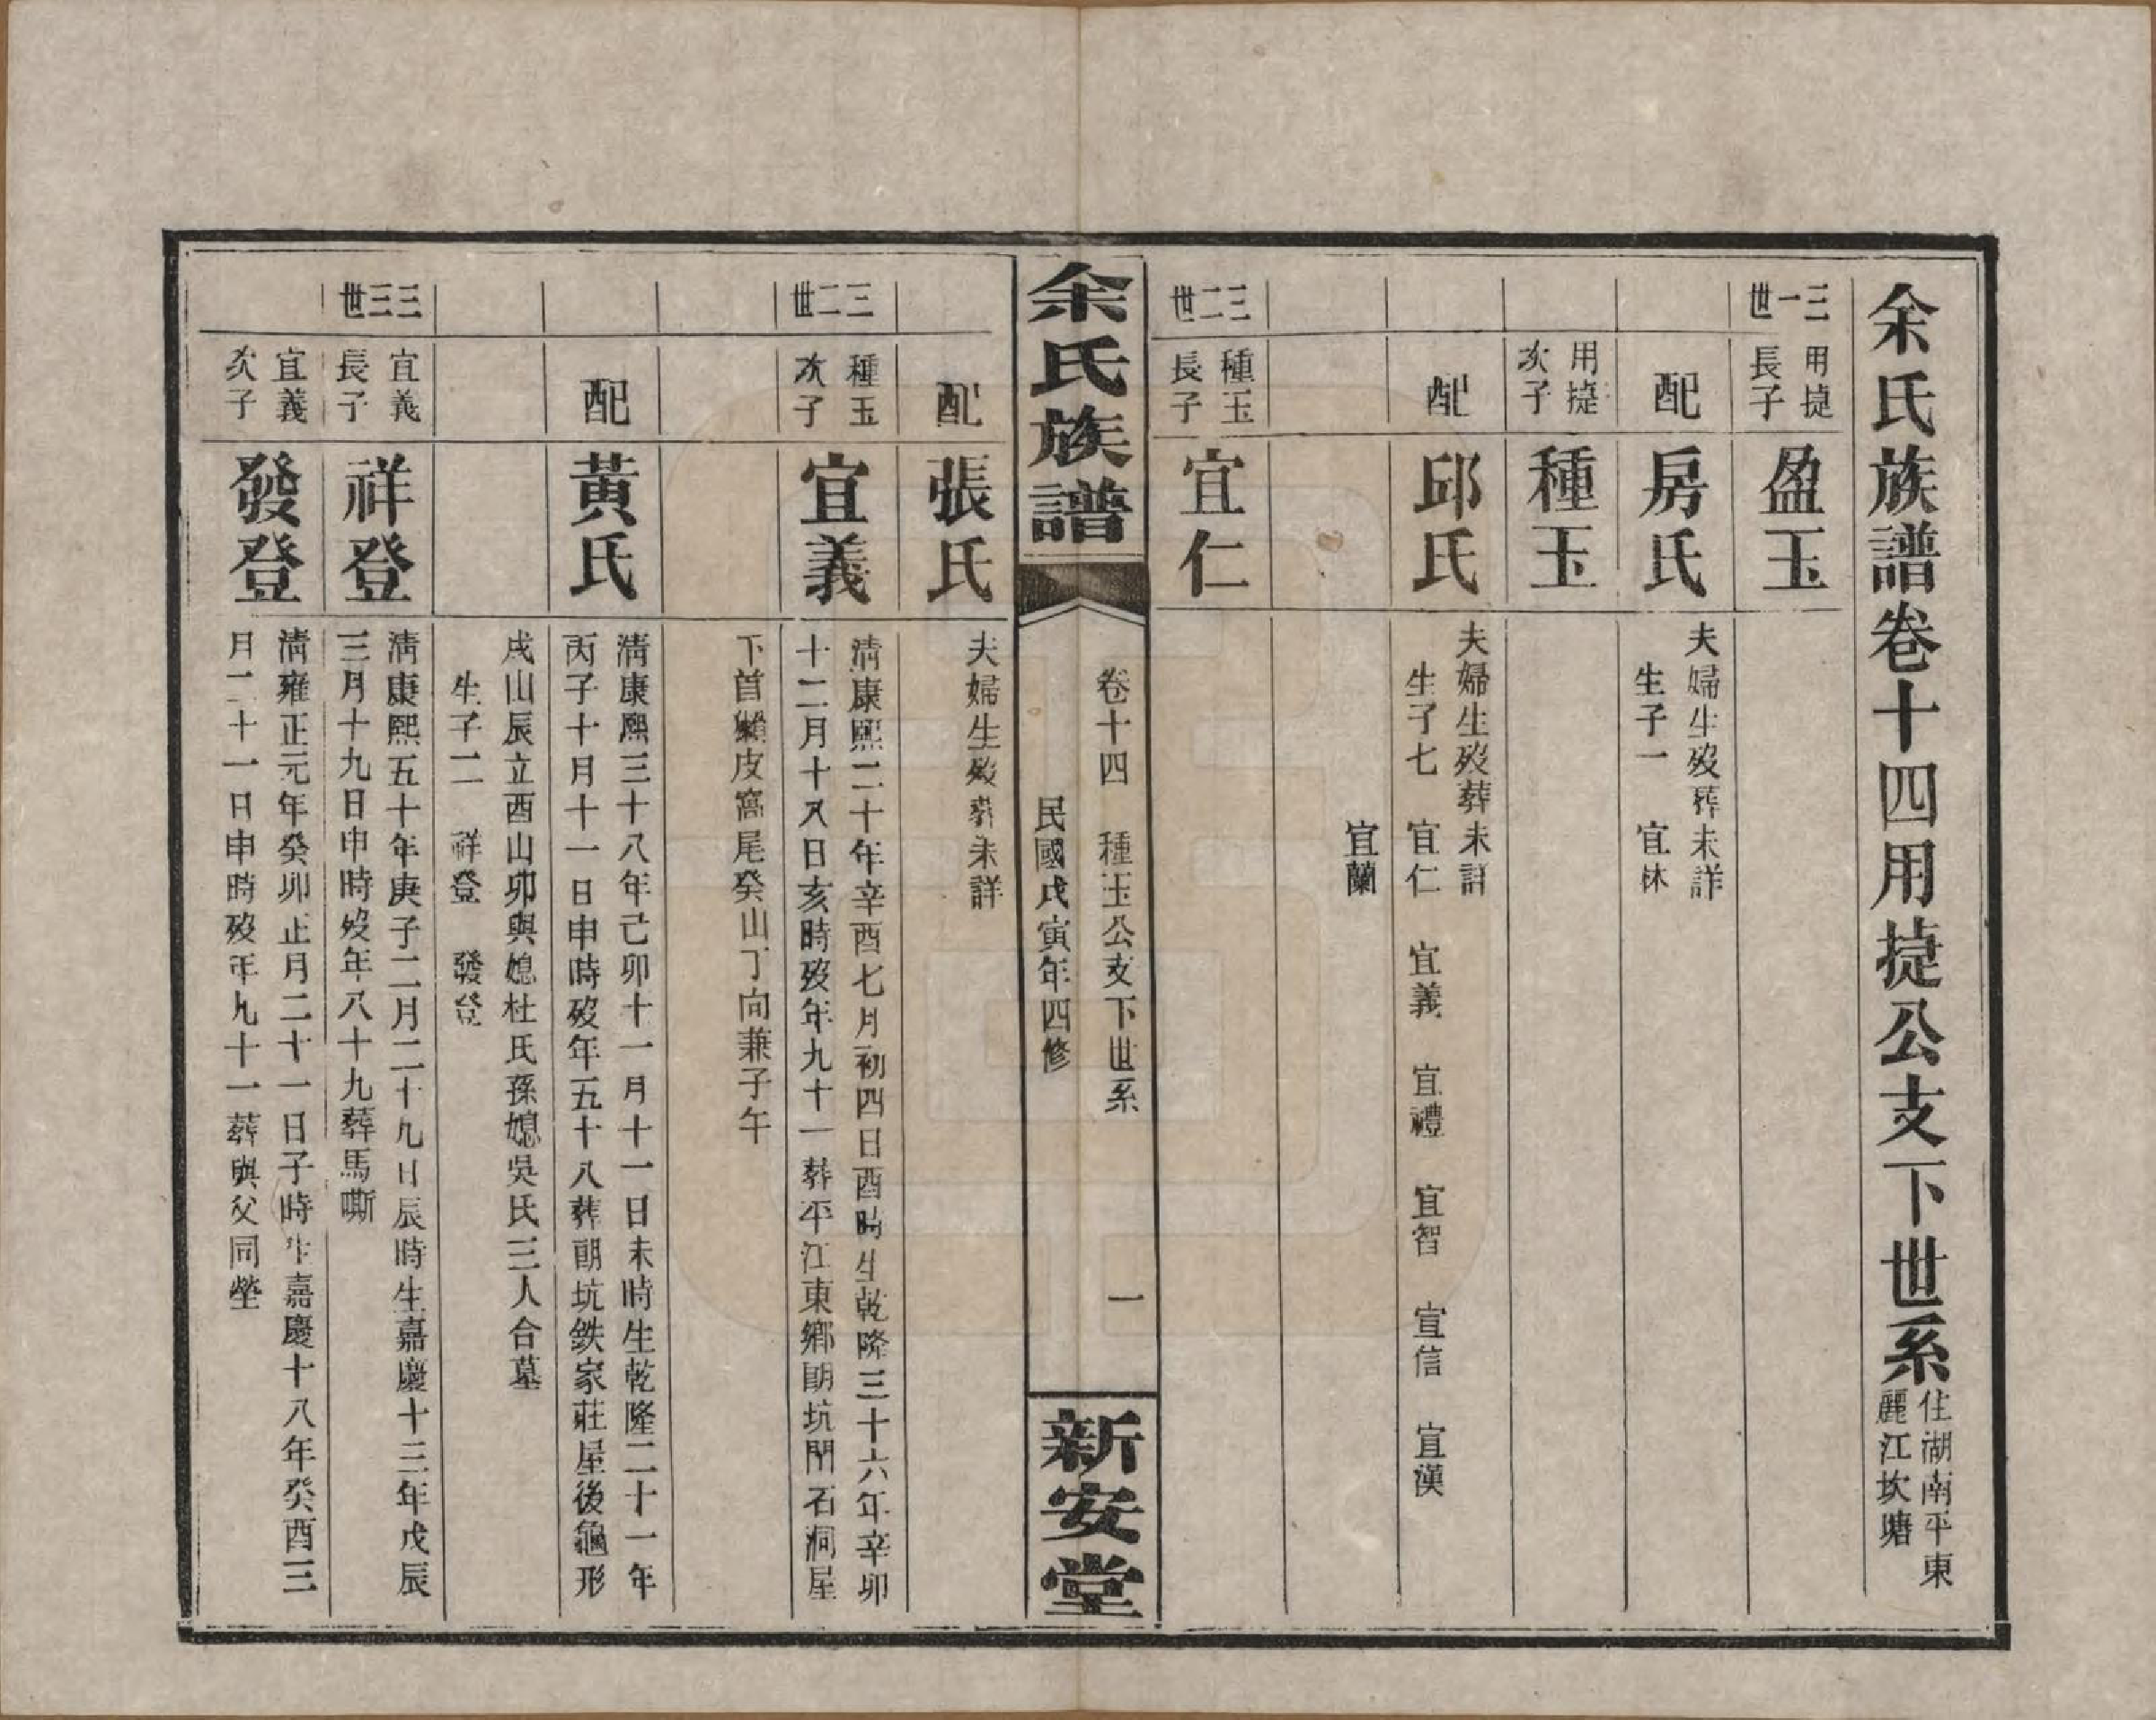 余氏族譜卷十四用㨗公支下世系
住湖南平東
麗江坎塘
三一世
用㨗
長子
盈玉
配
房氏
夫婦生歿葬未詳
生子一　宜林
用㨗
次子
種玉
配
邱氏
夫婦生歿葬未詳
生子七　宜仁　宜義　宜禮　宜智　宜信　宜漢
宜蘭
三二世
種玉
長子
宜仁
余氏族譜
卷十四　種玉公支下世系　一
民國戊寅年四修
新安堂
配
張氏
夫婦生歿葬未詳
三二世
種玉
次子
宜義
清康熙二十年辛酉七月初四日酉時生乾隆三十六年辛卯
十二月十八日亥時歿年九十一葬平江東鄉朗坑閘石洞屋
下首獺皮窩尾癸山丁向兼子午
配
黃氏
清康熙三十八年己卯十一月十一日未時生乾隆二十一年
丙子十月十一日申時歿年五十八葬朗坑鉄家莊屋後龜形
戌山辰立酉山卯與媳杜氏孫媳吳氏三人合墓
生子二　祥登　發登
三三世
宜義
長子
祥登
清康熙五十年庚子二月二十九日辰時生嘉慶十三年戊辰
三月十九日申時歿年八十九葬馬嘶
宜義
次子
發登
清雍正元年癸卯正月二十一日子時生嘉慶十八年癸酉三
月二十一日申時歿年九十一葬與父同塋